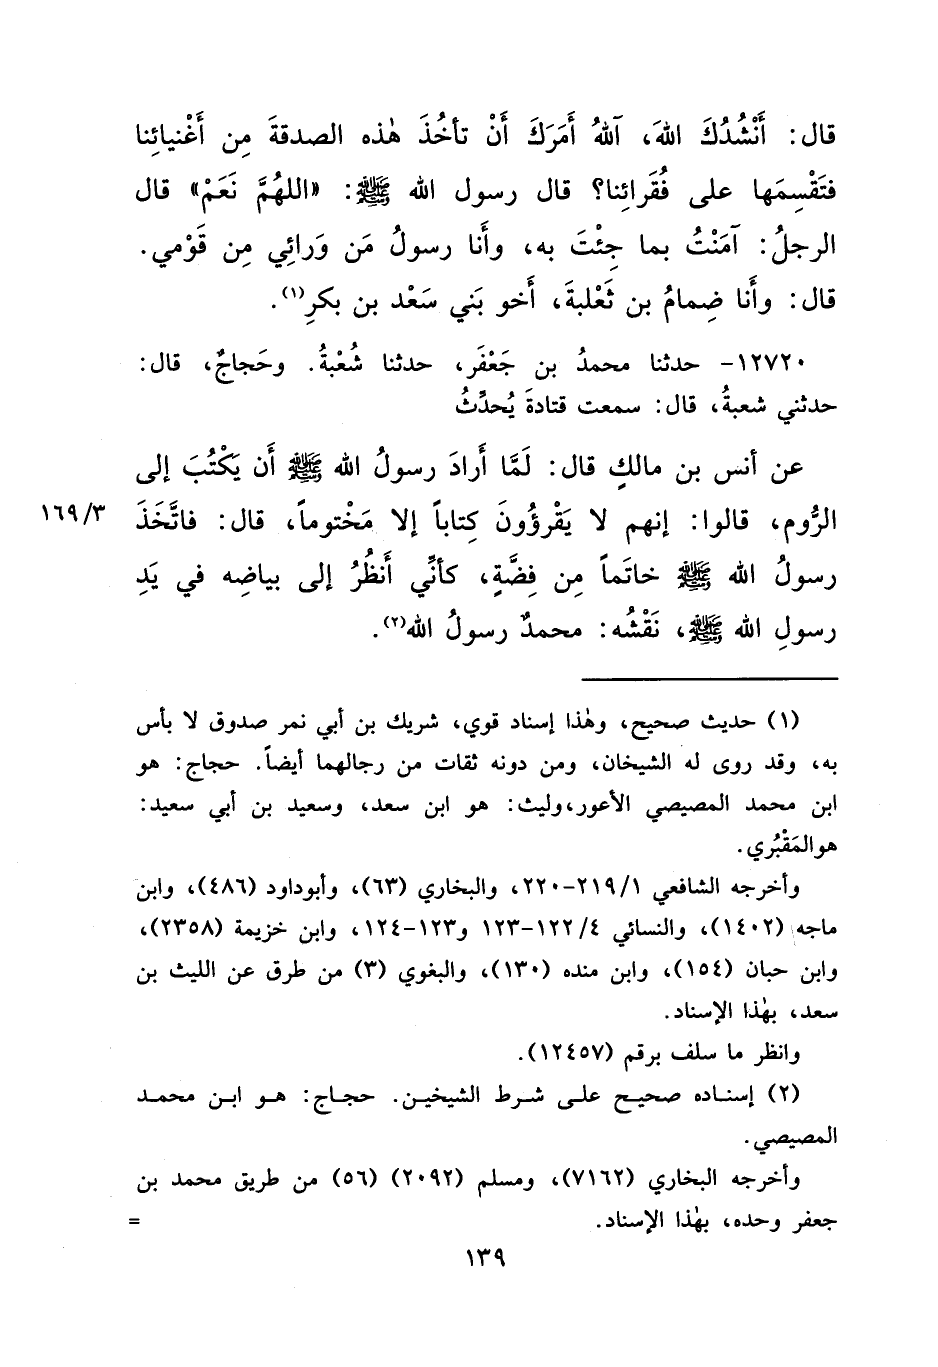 قال: أَنْشُدُكَ اللهَ، آللهُ أَمَرَكَ أَنْ تأخُذَ هٰذه الصدقةَ مِن أَغْنيائِنا
فتَقْسِمَها على فُقَرائِنا؟ قال رسول الله ﷺ: «اللهُمَّ نَعَمْ» قال
الرجلُ: آمَنْتُ بما جِئْتَ به، وأَنا رسولُ مَن وَرائِي مِن قَوْمي.
قال: وأَنا ضِمامُ بن ثَعْلبةَ، أَخو بَني سَعْد بن بكرٍ(١).
١٢٧٢٠- حدثنا محمدُ بن جَعْفَر، حدثنا شُعْبةُ. وحَجاجٌ، قال:
حدثني شعبةُ، قال: سمعت قتادةَ يُحدِّثُ
عن أنس بن مالكٍ قال: لَمَّا أَرادَ رسولُ الله ﷺ أَن يَكْتُبَ إلى
الرُّوم، قالوا: إنهم لا يَقْرؤُونَ كِتاباً إلا مَخْتوماً، قال: فاتَّخَذَ
١٦٩/٣
رسولُ الله ﷺ خاتَماً مِن فِضَّةٍ، كأنِّي أَنظُرُ إلى بياضِه في يَدِ
رسولِ الله ﷺ، نَقْشُه: محمدٌ رسولُ الله(٢).
(١) حديث صحيح، وهٰذا إسناد قوي، شريك بن أبي نمر صدوق لا بأس
به، وقد روى له الشيخان، ومن دونه ثقات من رجالهما أيضاً. حجاج: هو
ابن محمد المصيصي الأعور،وليث: هو ابن سعد، وسعيد بن أبي سعيد:
هوالمَقْبُري.
وأخرجه الشافعي ٢١٩/١-٢٢٠، والبخاري (٦٣)، وأبوداود (٤٨٦)، وابن
ماجه (١٤٠٢)، والنسائي ١٢٢/٤-١٢٣ و١٢٣-١٢٤، وابن خزيمة (٢٣٥٨)،
وابن حبان (١٥٤)، وابن منده (١٣٠)، والبغوي (٣) من طرق عن الليث بن
سعد، بهٰذا الإسناد.
وانظر ما سلف برقم (١٢٤٥٧).
(٢) إسناده صحيح على شرط الشيخين. حجاج: هو ابن محمد
المصيصي.
وأخرجه البخاري (٧١٦٢)، ومسلم (٢٠٩٢) (٥٦) من طريق محمد بن
جعفر وحده، بهٰذا الإسناد. =
١٣٩